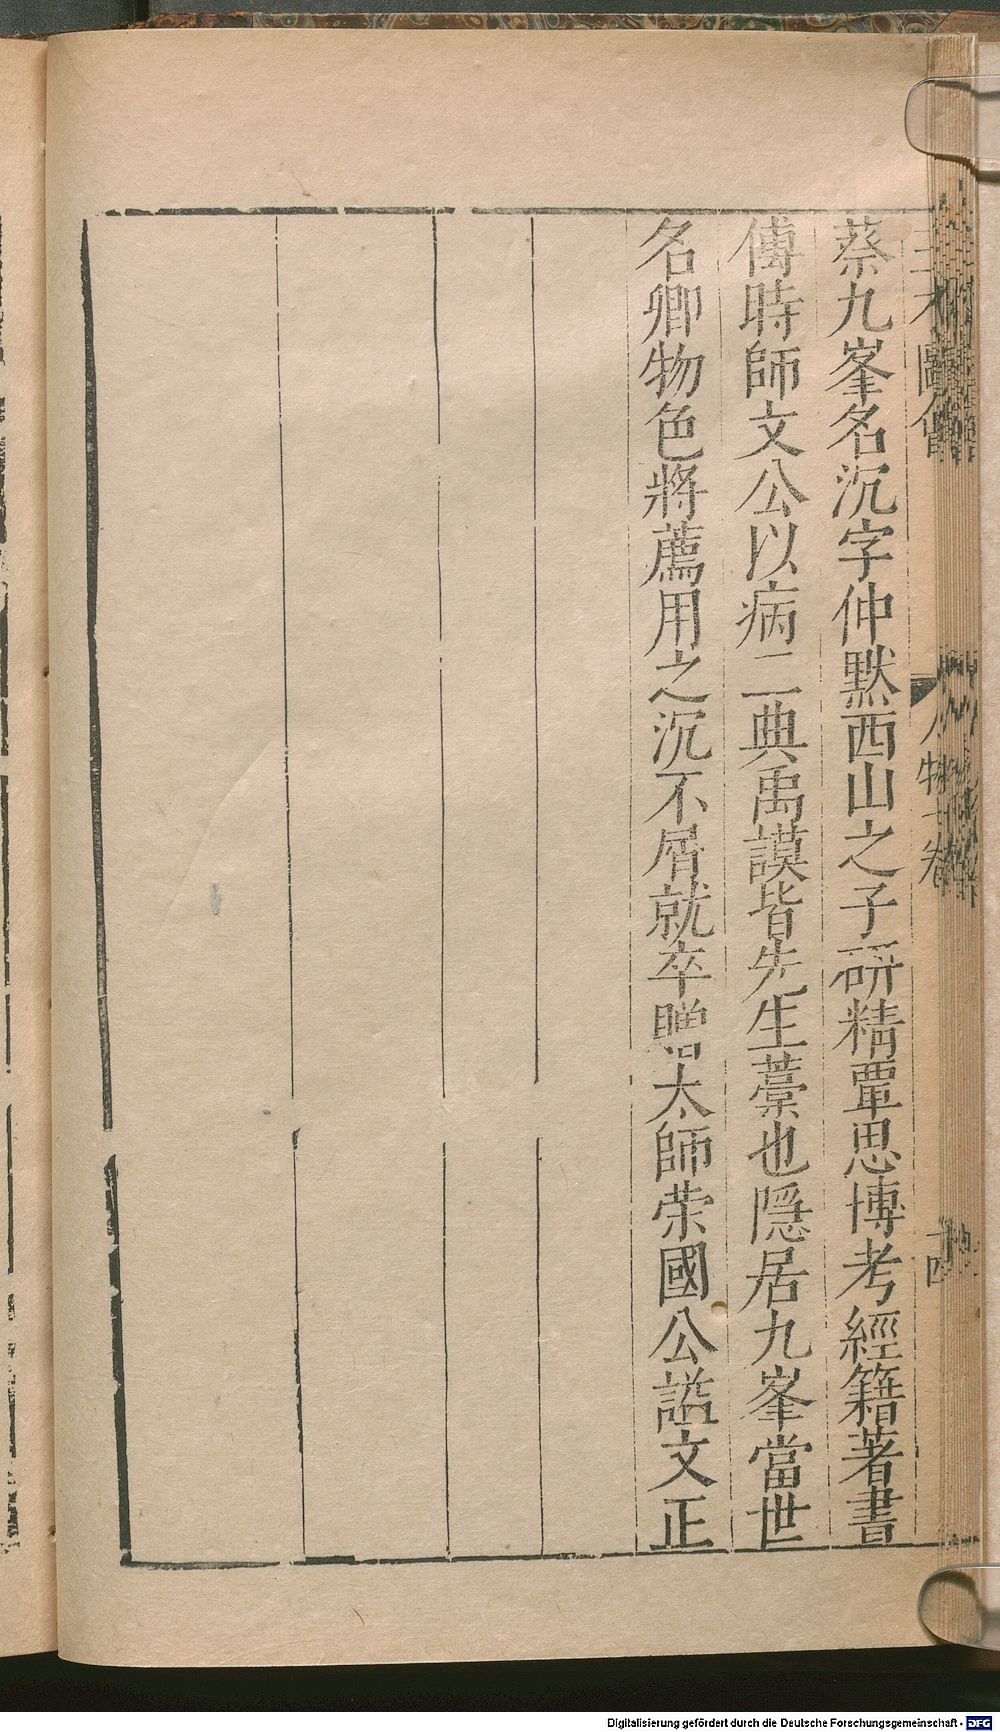 三才圖會
人物七卷
十四
蔡九峯名沉字仲默西山之子研精覃思博考經籍著書
傅時師文公以病二典禹謨皆先生藁也隱居九峯當世
名卿物色將薦用之沉不屑就卒贈太師荣國公謚文正
Digitalisierung gefördert durch die Deutsche Forschungsgemeinschaft - DFG